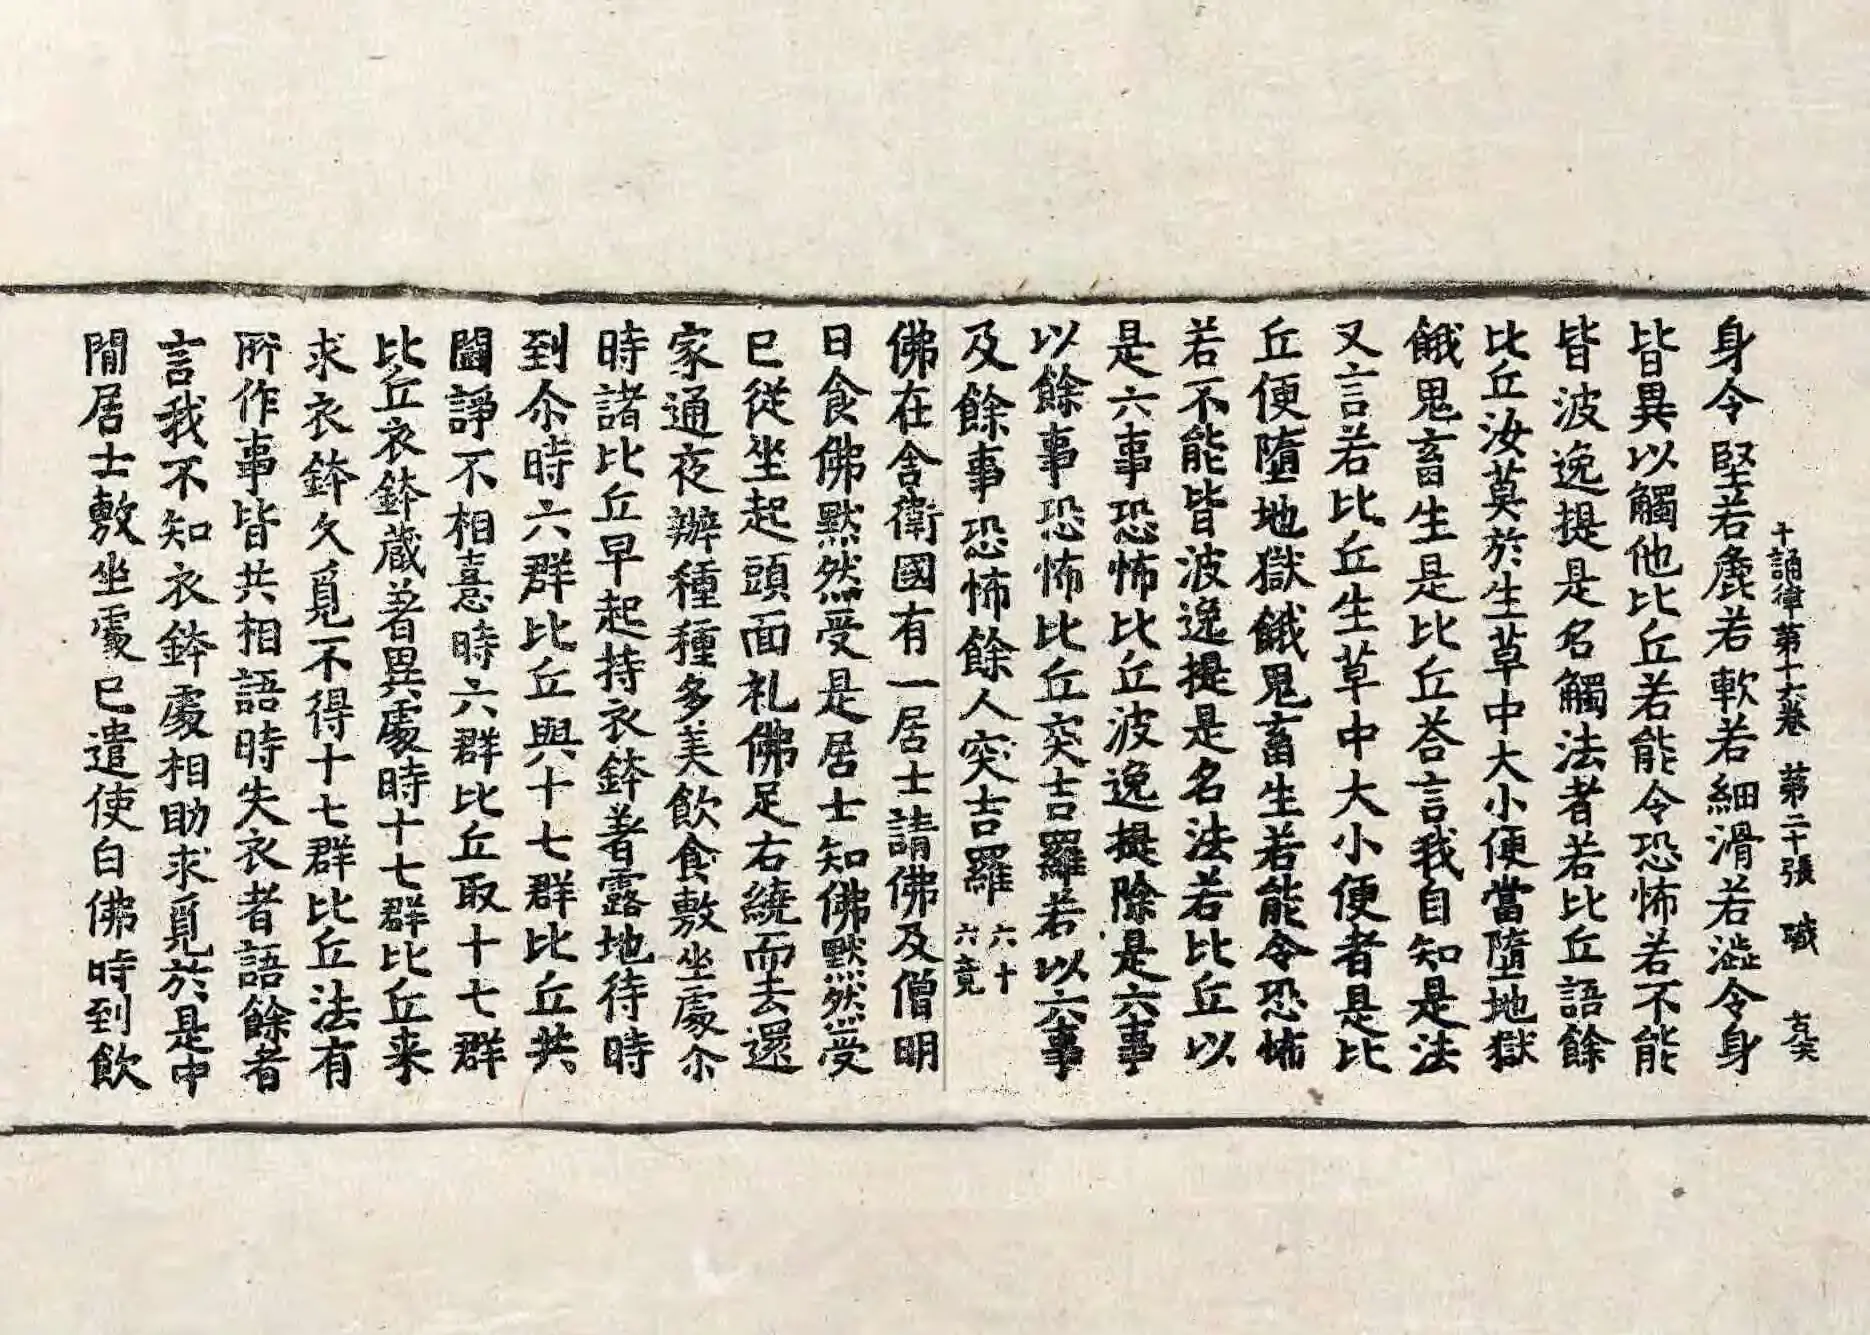 十誦律第十六卷 第二十張 職
身令堅若麁若軟若細滑若澁令身
皆異以觸他比丘若能令恐怖若不能
皆波逸提是名觸法者若比丘語餘
比丘汝莫於生草中大小便當墮地獄
餓鬼畜生是比丘荅言我自知是法
又言若比丘生草中大小便者是比
丘便墮地獄餓鬼畜生若能令恐怖
若不能皆波逸提是名法若比丘以
是六事恐怖比丘波逸提除是六事
以餘事恐怖比丘突吉羅若以六事
及餘事恐怖餘人突吉羅 六十六竟
佛在舍衛國有一居士請佛及僧明
日食佛默然受是居士知佛默然受
已從坐起頭面礼佛足右繞而去還
家通夜辦種種多美飲食敷坐處尒
時諸比丘早起持衣鉢著露地待時
到尒時六群比丘與十七群比丘共
鬪諍不相憙時六群比丘取十七群
比丘衣鉢藏著異處時十七群比丘来
求衣鉢久覓不得十七群比丘法有
所作事皆共相語時失衣者語餘者
言我不知衣鉢處相助求覓於是中
間居士敷坐處已遣使白佛時到飲